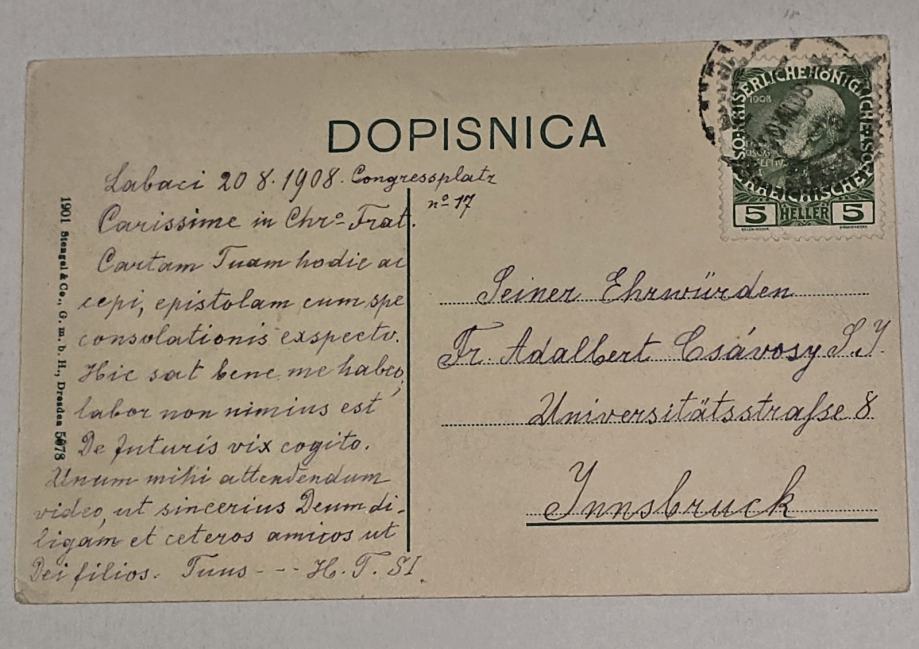 DOPISNICA
Labaci 20 8. 1908. Congressplatz
nº 17
Carissime in Chrº- Frat.
Cartam Tuam hodie ac
cepi, epistolam cum spe
consolationis exspecto.
Hic sat bene me habeo,
labor non nimius est
De futuris vix cogito.
Unum mihi attendendum
video, ut sincerius Deum di-
ligam et ceteros amicos ut
Dei filios. Tuus --- H. T. SI.
1901 Stengel & Co., G. m. b. H., Dresden
1908
5 HELLER 5
Seiner Ehrwürden
Fr. Adalbert Csávosy S. J.
Universitätsstraſse 8
Innsbruck